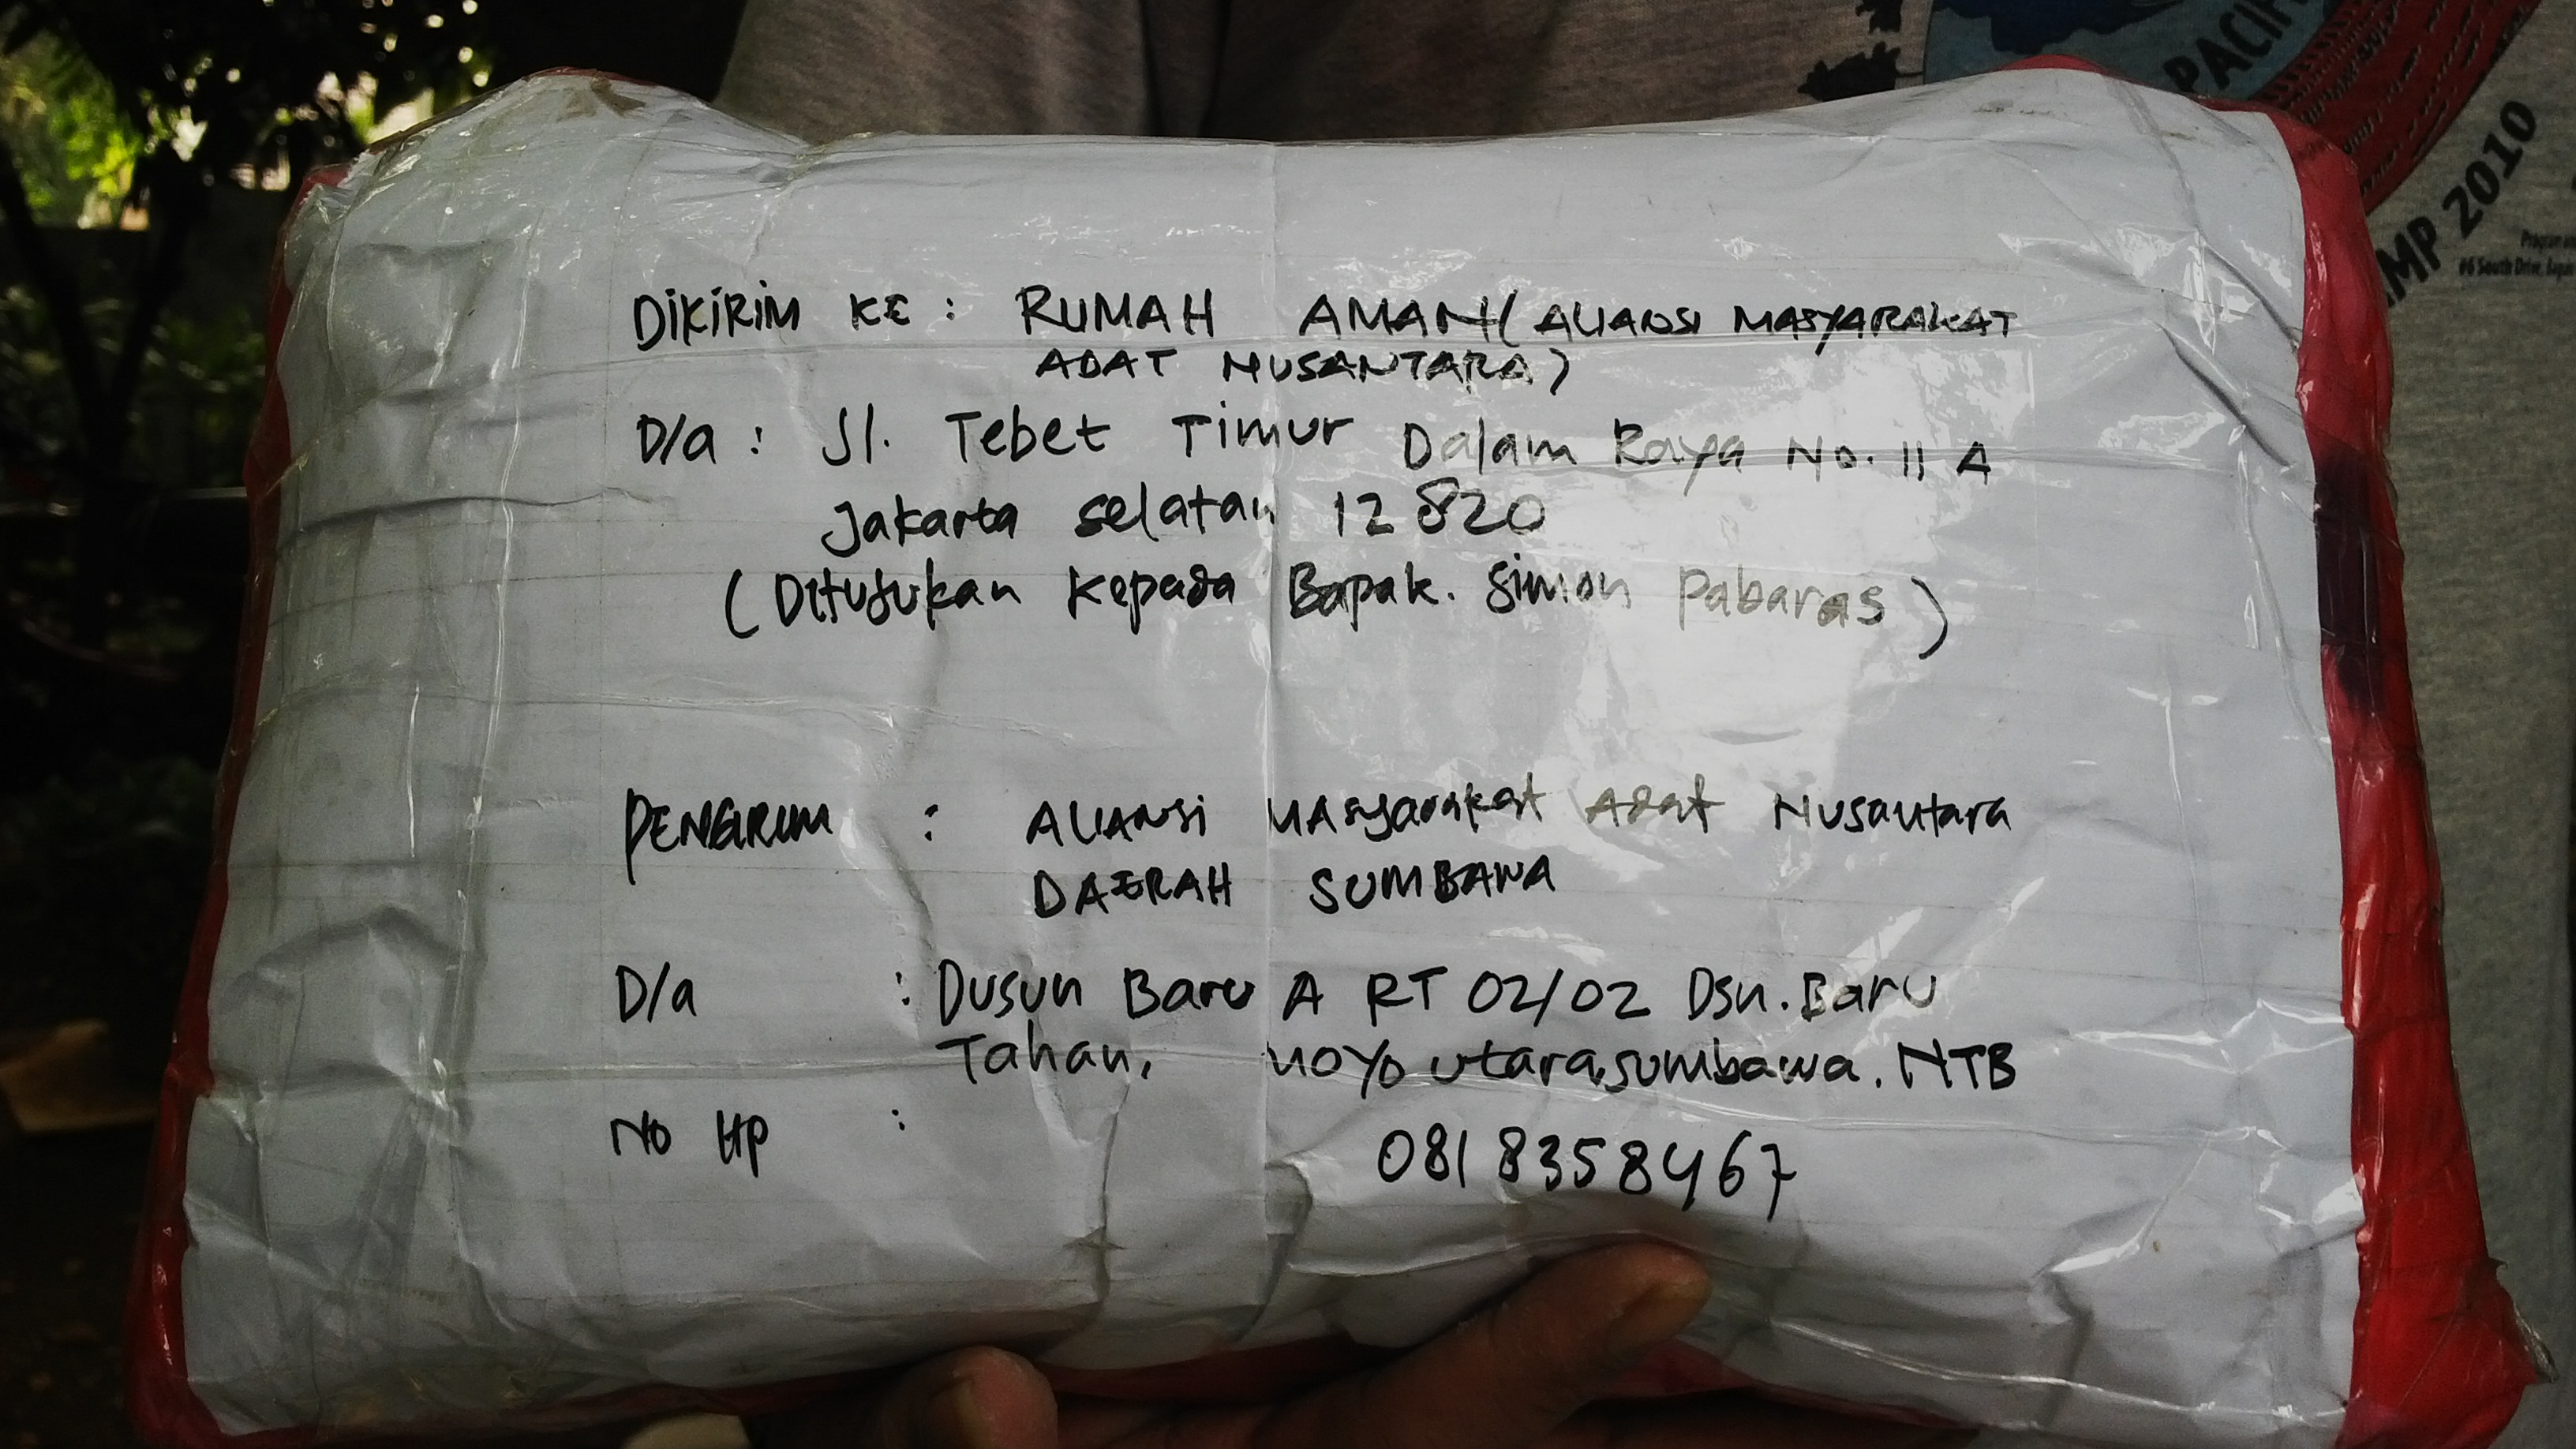 DIKIRIM KE : RUMAH AMAN (ALIANSI MASYARAKAT
ADAT NUSANTARA)
D/a : Jl. Tebet Timur Dalam Raya No. 11 A
Jakarta selatan 12820
(Ditujukan Kepada Bapak. Simon Pabaras)
PENGIRIM : ALIANSI MAsyarakat Adat Nusantara
DAERAH SUMBAWA
D/a : Dusun Baru A RT 02/02 Dsn. Baru
Tahan, MOYO utara, sumbawa. NTB
No HP : 0818358467
PACIF
MP 2010